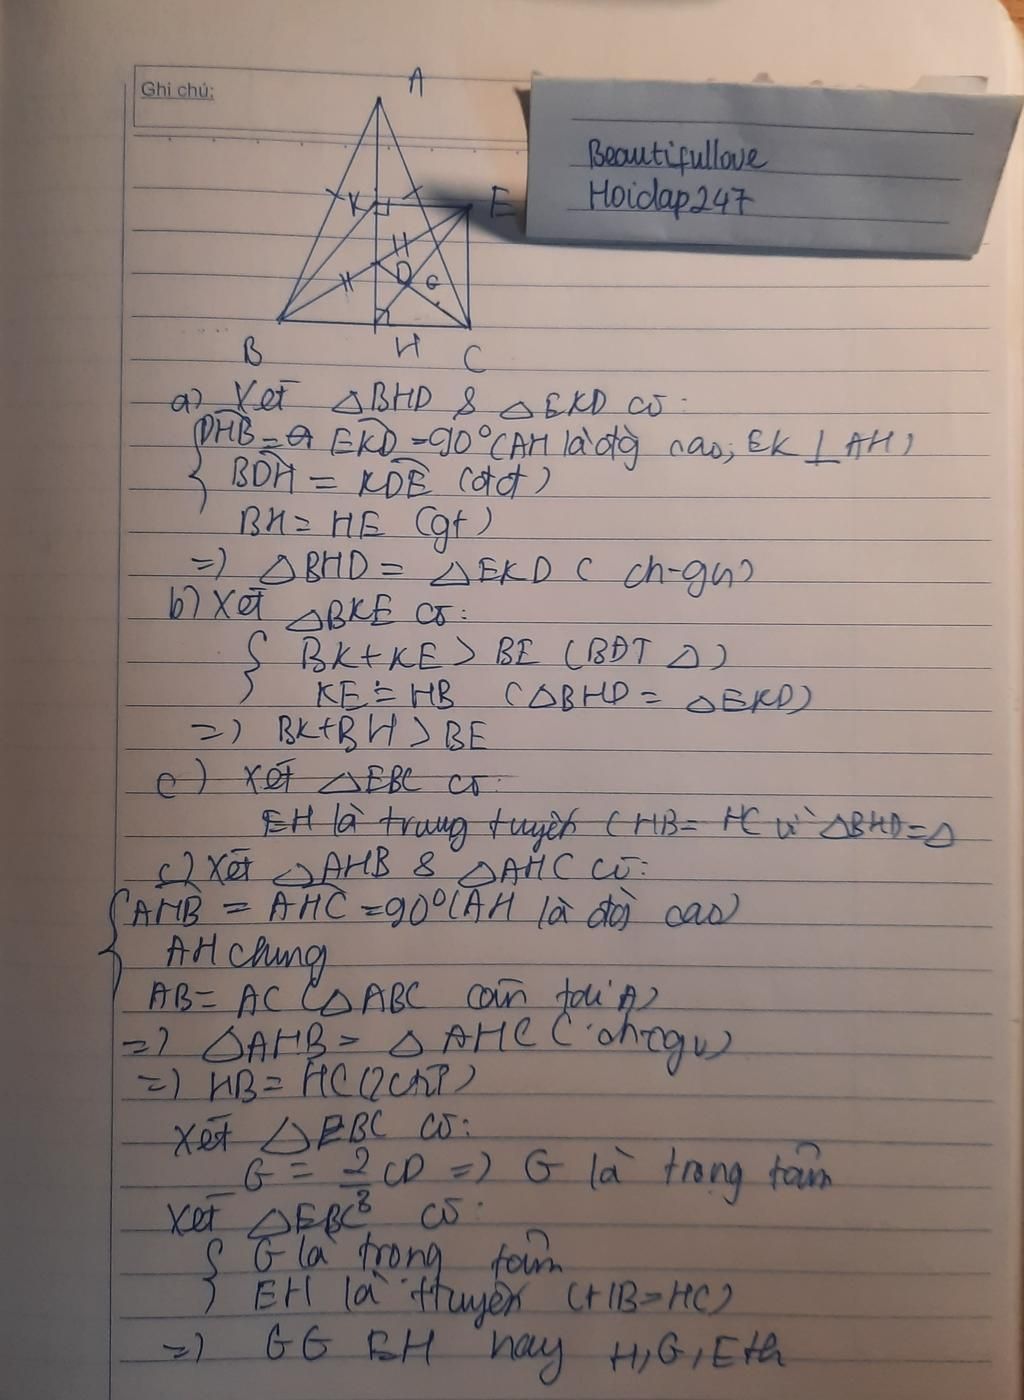 Ghi chú:
Beautifullove
Hoidap247
A
K
E
D
G
B
H
C
a) Xét △BHD & △EKD có:
DHB = EKD = 90° (AH là đg cao; EK ⊥ AH)
BDH = KDE (đđ)
BH = HE (gt)
=) △BHD = △EKD (ch-gn)
b) Xét △BKE có:
BK+KE > BE (BĐT △)
KE = HB (△BHD = △EKD)
=) BK+BH > BE
c) Xét △EBC có:
EH là trung tuyến (HB = HC vì △BHD = △
c) Xét △AHB & △AHC có:
AHB = AHC = 90° (AH là đg cao)
AH chung
AB = AC (△ABC cân tại A)
=) △AHB = △AHC (ch-cgv)
=) HB = HC (2ctứ)
Xét △EBC có:
G = 2/3 CD =) G là trọng tâm
Xét △EBC có:
G là trọng tâm
EH là ttuyến (HB=HC)
=) G∈ EH hay H, G, E th